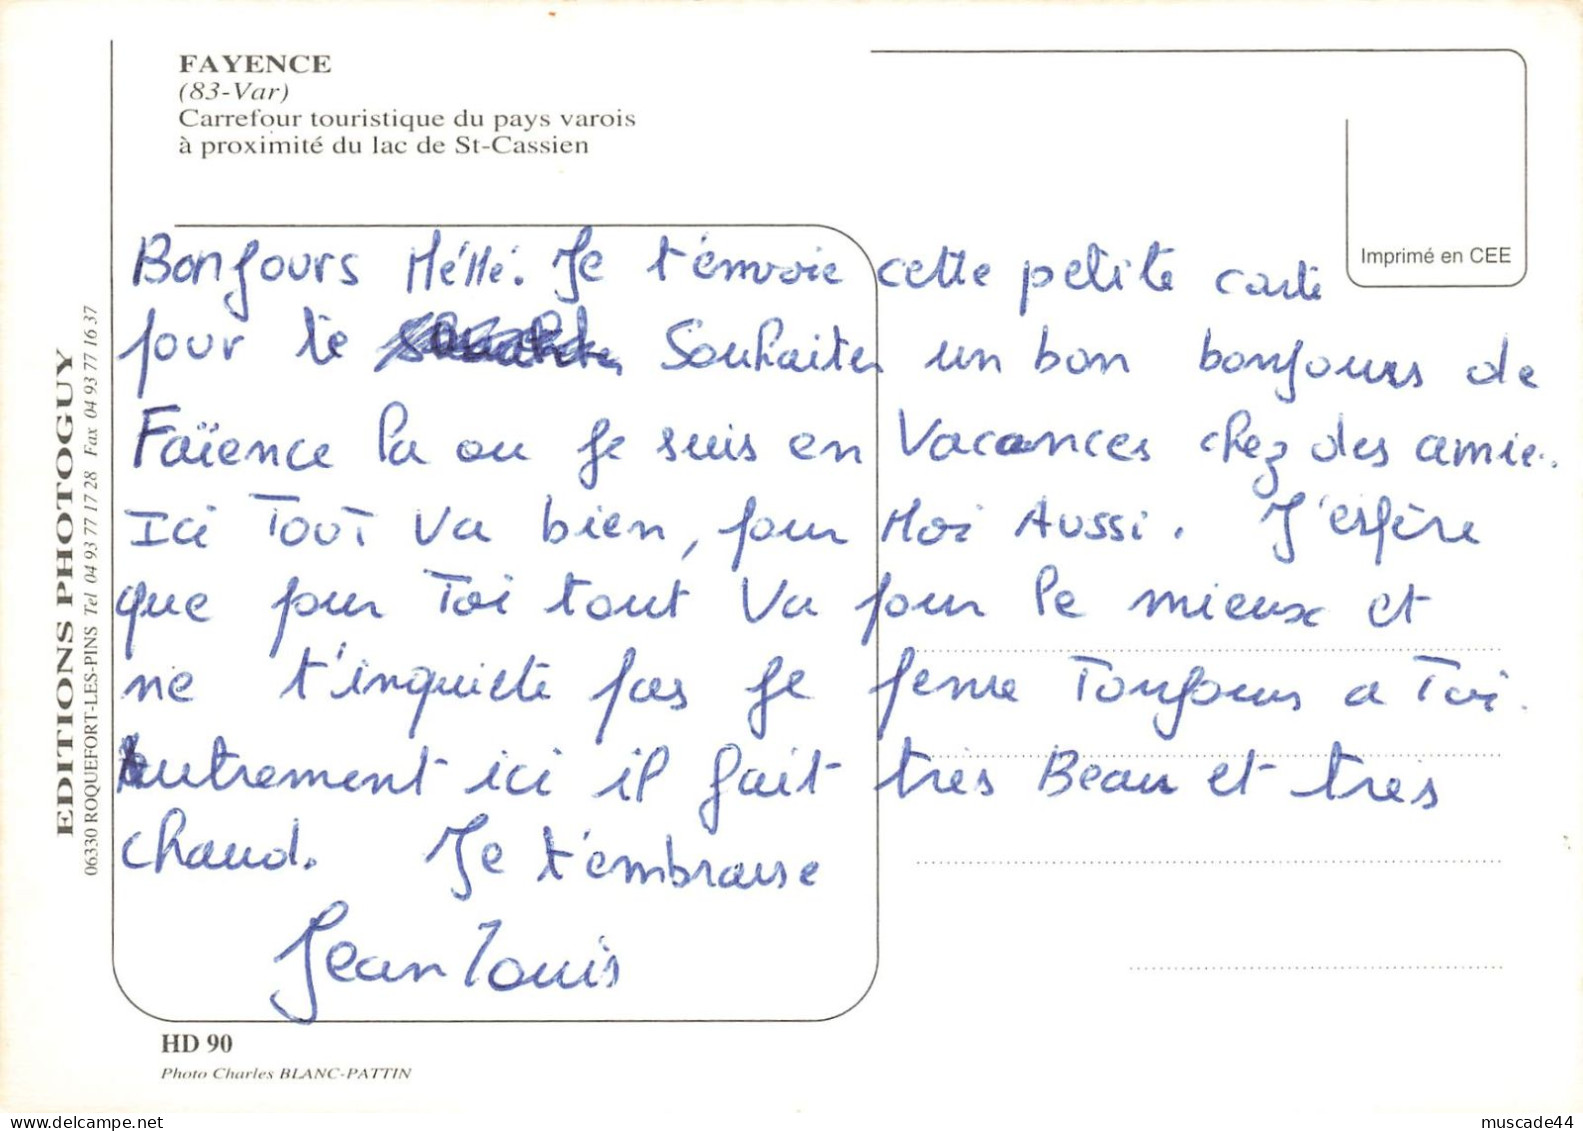 FAYENCE
(83-Var)
Carrefour touristique du pays varois
à proximité du lac de St-Cassien
Imprimé en CEE
Bonjours Mémé. Je t'envoie cette petite carte
pour te Souhaiter un bon bonjours de
Faïence la ou je suis en Vacances chez des amie.
Ici Tout va bien, pour Moi Aussi. J'espére
que pour Toi tout va pour le mieux et
ne t'inquiete pas je pense Toujours a Toi.
Autrement ici il fait tres Beau et tres
chaud. Je t'embrasse
Jean Louis
EDITIONS PHOTOGUY
06330 ROQUEFORT-LES-PINS Tel 04 93 77 17 28 Fax 04 93 77 16 37
HD 90
Photo Charles BLANC-PATTIN
muscade44